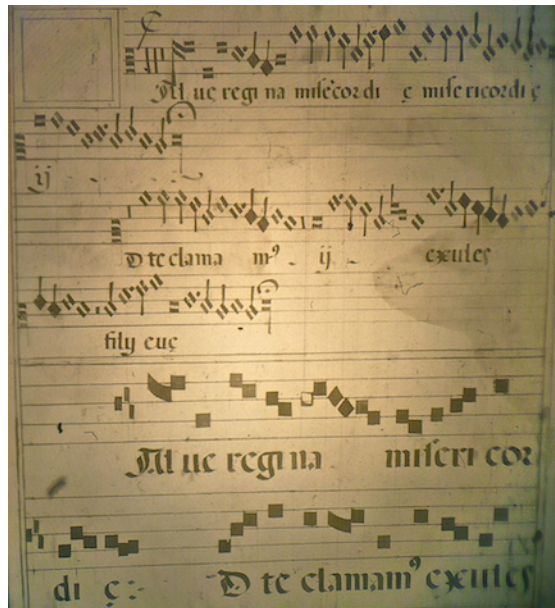 Al ue regi na misecordi ę misericordi ę
ij
D te clama m⁹ ij exules
filij euę
Al ue regi na miseri cor
di ę D te clamam⁹ exules